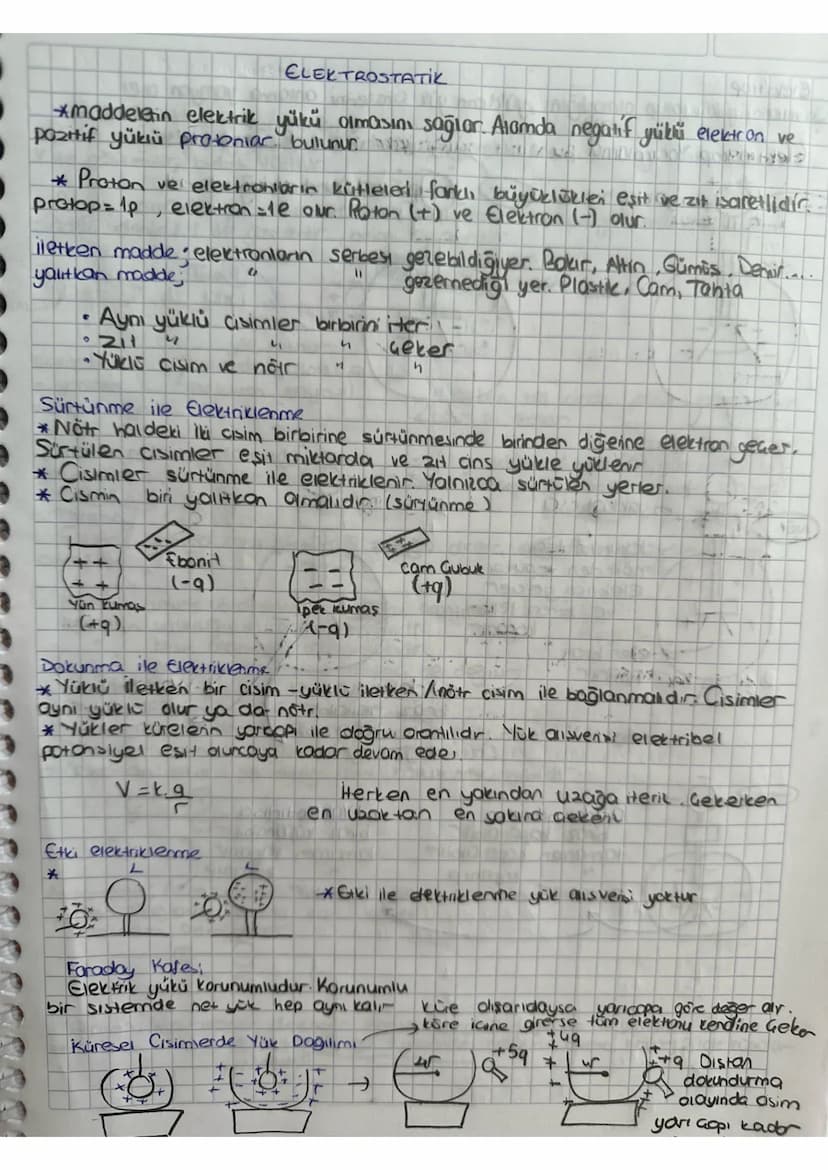 ELEKTROSTATİK
*maddelerin elektrik yükü olmasını sağlar. Atomda negatif yüklü elektron ve
pozitif yüklü protonlar bulunur
* Proton ve elektronların kütleleri farklı büyüklükleri eşit ve zıt işaretlidir.
proton=1p , elektron=1e olur. Proton (+) ve Elektron (-) olur.
iletken madde; elektronların serbest gezebildiği yer. Bakır, Altın, Gümüş, Demir....
yalıtkan madde; " " gezemediği yer. Plastik, Cam, Tahta
• Aynı yüklü cisimler birbirini iter
• Zıt " " " çeker
• Yüklü cisim ve nötr " "
Sürtünme ile Elektriklenme
* Nötr haldeki iki cisim birbirine sürtünmesinde birinden diğerine elektron geçer.
Sürtülen cisimler eşit miktarda ve zıt cins yükle yüklenir
* Cisimler sürtünme ile elektriklenir. Yalnızca sürtülen yerler.
* Cismin biri yalıtkan olmalıdır. (sürtünme)
+ +
+ +
Ebonit
(-q)
- -
- -
cam Çubuk
(+q)
yün kumaş
(+q)
ipek kumaş
(-q)
Dokunma ile Elektriklenme
* Yüklü iletken bir cisim - yüklü iletken / nötr cisim ile bağlanmalıdır. Cisimler
aynı yüklü olur ya da nötr.
* Yükler kürelerin yarıçapı ile doğru orantılıdır. Yük alışverişi elektriksel
potansiyel eşit oluncaya kadar devam eder
V = k.q/r
İterken en yakından uzağa iterir. Çekerken
en uzaktan en yakına çekerir
Etki elektriklenme
*
* Etki ile elektriklenme yük alışverişi yoktur
Faraday Kafesi
Elektrik yükü korunumludur. Korunumlu
bir sistemde net yük hep aynı kalır
küre dışarıdaysa yarıçapa göre değer alır.
→ küre içine girerse tüm elektronu kendine çeker
Küresel Cisimlerde Yük Dağılımı
→
4r
+5q
+4q
4r
+q Dıştan
dokundurma
olayında cisim
yarı çapı kadar